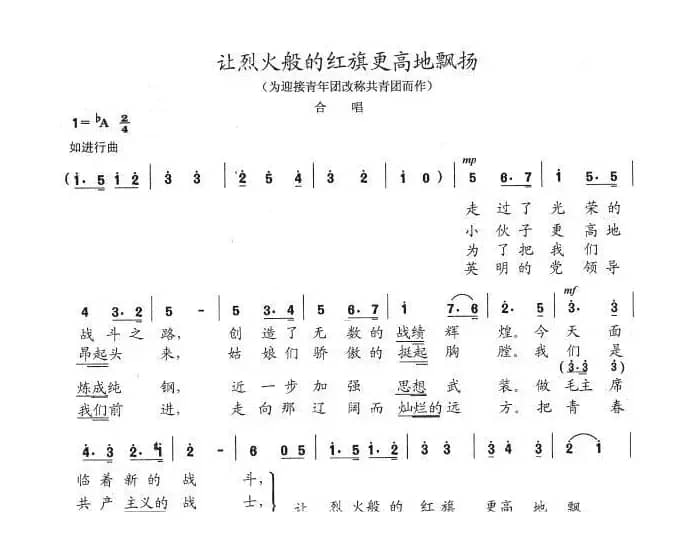 让烈火般的红旗更高地飘扬
（为迎接青年团改称共青团而作）
合 唱
1=♭A 2/4
如进行曲
mp
(i·5 i2 | 3 3 | 2 5 4 | 3 2 | i 0) | 5 6·7 | i 5·5
走 过了光 荣的
小 伙子更 高地
为 了把我 们
英 明的党 领导
mf
4 3·2 | 5 - | 5 3·4 | 5 6·7 | i 7·6 | 2· 5 | 3· 3
战 斗之 路， 创 造了 无 数的 战绩 辉 煌。今 天 面
昂起头 来， 姑 娘们 骄 傲的 挺起 胸 膛。我 们 是
(3·3 3)
炼成纯 钢， 近 一步 加 强 思想 武 装。做 毛主 席
我们前 进， 走 向那 辽 阔而 灿烂的 远 方。把 青 春
4·3 2·1 | 2 - | 6 05 | i·2 i 5 | 3·2 3 | 4· 3 | 2 i
临着新的 战 斗，
共产主义的 战 士，
让 烈 火般的 红 旗 更高 地 飘